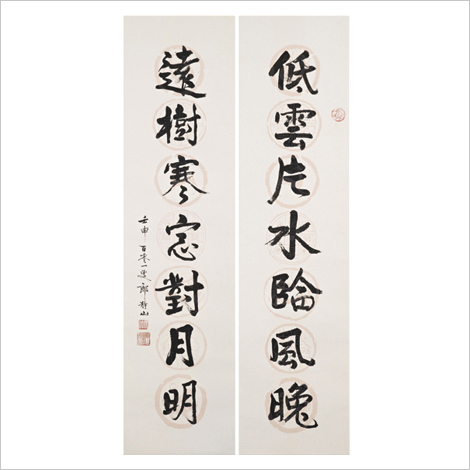 低雲片水臨風晚
遠樹寒窓對月明
壬申 百零一叟 郎靜山